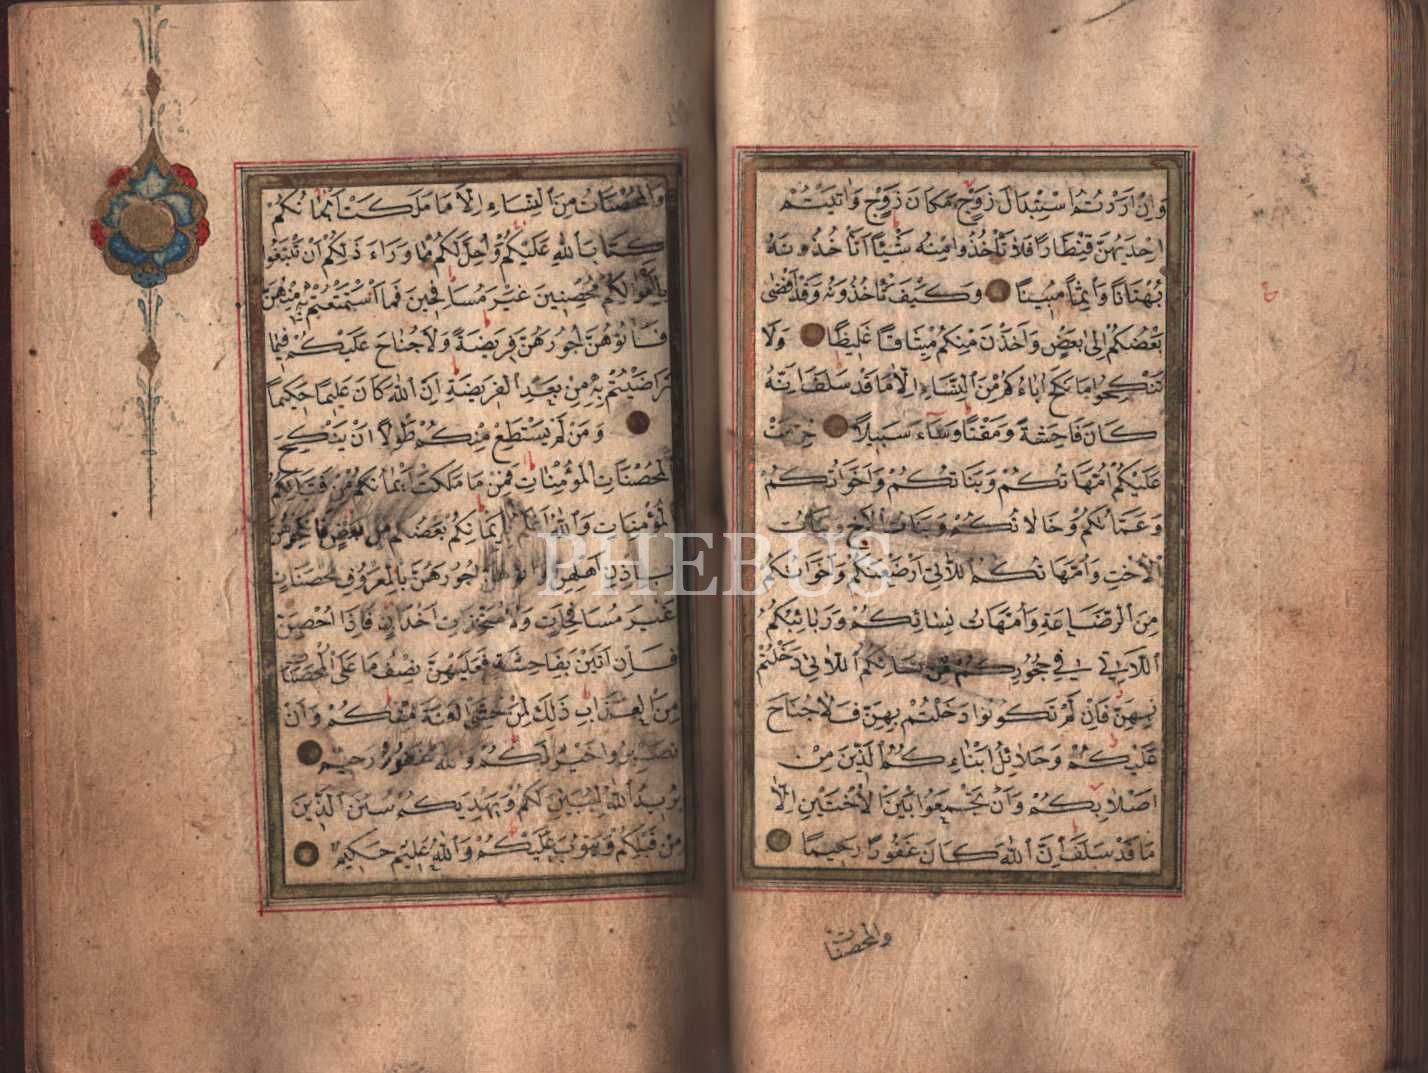 وَاِنْ اَرَدْتُمُ اسْتِبْدَالَ زَوْجٍ مَكَانَ زَوْجٍ وَاٰتَيْتُمْ
اِحْدٰيهُنَّ قِنْطَارًا فَلَا تَأْخُذُوا مِنْهُ شَيْئًا اَتَأْخُذُونَهُ
بُهْتَانًا وَاِثْمًا مُبِينًا وَكَيْفَ تَأْخُذُونَهُ وَقَدْ اَفْضٰى
بَعْضُكُمْ اِلٰى بَعْضٍ وَاَخَذْنَ مِنْكُمْ مِيثَاقًا غَلِيظًا وَلَا
تَنْكِحُوا مَا نَكَحَ اٰبَاؤُكُمْ مِنَ النِّسَاءِ اِلَّا مَا قَدْ سَلَفَ اِنَّهُ
كَانَ فَاحِشَةً وَمَقْتًا وَسَاءَ سَبِيلًا حُرِّمَتْ
عَلَيْكُمْ اُمَّهَاتُكُمْ وَبَنَاتُكُمْ وَاَخَوَاتُكُمْ
وَعَمَّاتُكُمْ وَخَالَاتُكُمْ وَبَنَاتُ الْاَخِ وَبَنَاتُ
الْاُخْتِ وَاُمَّهَاتُكُمُ اللَّاتِي اَرْضَعْنَكُمْ وَاَخَوَاتُكُمْ
مِنَ الرَّضَاعَةِ وَاُمَّهَاتُ نِسَائِكُمْ وَرَبَائِبُكُمُ
اللَّاتِي فِي حُجُورِكُمْ مِنْ نِسَائِكُمُ اللَّاتِي دَخَلْتُمْ
بِهِنَّ فَاِنْ لَمْ تَكُونُوا دَخَلْتُمْ بِهِنَّ فَلَا جُنَاحَ
عَلَيْكُمْ وَحَلَائِلُ اَبْنَائِكُمُ الَّذِينَ مِنْ
اَصْلَابِكُمْ وَاَنْ تَجْمَعُوا بَيْنَ الْاُخْتَيْنِ اِلَّا
مَا قَدْ سَلَفَ اِنَّ اللّٰهَ كَانَ غَفُورًا رَحِيمًا
والمحصنات
وَالْمُحْصَنَاتُ مِنَ النِّسَاءِ اِلَّا مَا مَلَكَتْ اَيْمَانُكُمْ
كِتَابَ اللّٰهِ عَلَيْكُمْ وَاُحِلَّ لَكُمْ مَا وَرَاءَ ذٰلِكُمْ اَنْ تَبْتَغُوا
بِاَمْوَالِكُمْ مُحْصِنِينَ غَيْرَ مُسَافِحِينَ فَمَا اسْتَمْتَعْتُمْ بِهِ مِنْهُنَّ
فَاٰتُوهُنَّ اُجُورَهُنَّ فَرِيضَةً وَلَا جُنَاحَ عَلَيْكُمْ فِيمَا
تَرَاضَيْتُمْ بِهِ مِنْ بَعْدِ الْفَرِيضَةِ اِنَّ اللّٰهَ كَانَ عَلِيمًا حَكِيمًا
وَمَنْ لَمْ يَسْتَطِعْ مِنْكُمْ طَوْلًا اَنْ يَنْكِحَ
الْمُحْصَنَاتِ الْمُؤْمِنَاتِ فَمِنْ مَا مَلَكَتْ اَيْمَانُكُمْ مِنْ فَتَيَاتِكُمُ
الْمُؤْمِنَاتِ وَاللّٰهُ اَعْلَمُ بِاِيمَانِكُمْ بَعْضُكُمْ مِنْ بَعْضٍ فَانْكِحُوهُنَّ
بِاِذْنِ اَهْلِهِنَّ وَاٰتُوهُنَّ اُجُورَهُنَّ بِالْمَعْرُوفِ مُحْصَنَاتٍ
غَيْرَ مُسَافِحَاتٍ وَلَا مُتَّخِذَاتِ اَخْدَانٍ فَاِذَا اُحْصِنَّ
فَاِنْ اَتَيْنَ بِفَاحِشَةٍ فَعَلَيْهِنَّ نِصْفُ مَا عَلَى الْمُحْصَنَاتِ
مِنَ الْعَذَابِ ذٰلِكَ لِمَنْ خَشِيَ الْعَنَتَ مِنْكُمْ وَاَنْ
تَصْبِرُوا خَيْرٌ لَكُمْ وَاللّٰهُ غَفُورٌ رَحِيمٌ
يُرِيدُ اللّٰهُ لِيُبَيِّنَ لَكُمْ وَيَهْدِيَكُمْ سُنَنَ الَّذِينَ
مِنْ قَبْلِكُمْ وَيَتُوبَ عَلَيْكُمْ وَاللّٰهُ عَلِيمٌ حَكِيمٌ
PHEBUS